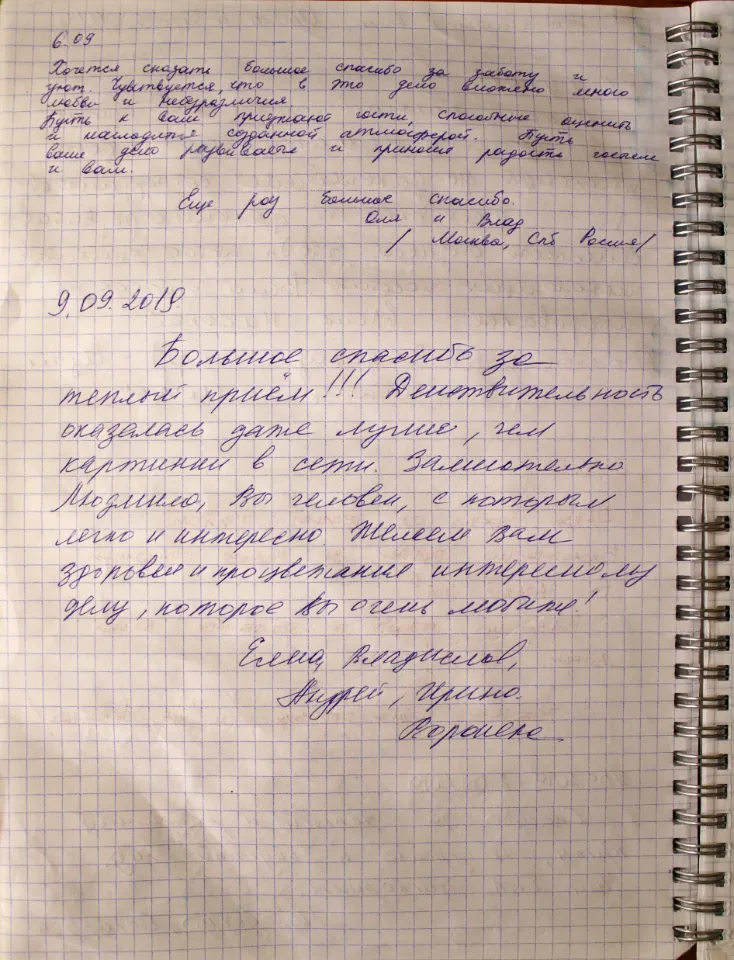 6.09
Хочется сказать большое спасибо за заботу и
уют. Чувствуется, что в это дело вложено много
любви и небезразличия
Пусть к вам приезжают гости, способные оценить
и насладится созданной атмосферой. Пусть
ваше дело развивается и приносит радость гостям
и вам.
Еще раз большое спасибо.
Оля и Влад
/ Москва, Спб Россия/
9.09.2019
Большое спасибо за
теплый приём!!! Действительность
оказалась даже лучше, чем
картинки в сети. Замечательно
Людмила, Вы человек, с которым
легко и интересно. Желаем Вам
здоровья и процветания интересному
делу, которое Вы очень любите!
Елена, Владислав,
Андрей, Ирина.